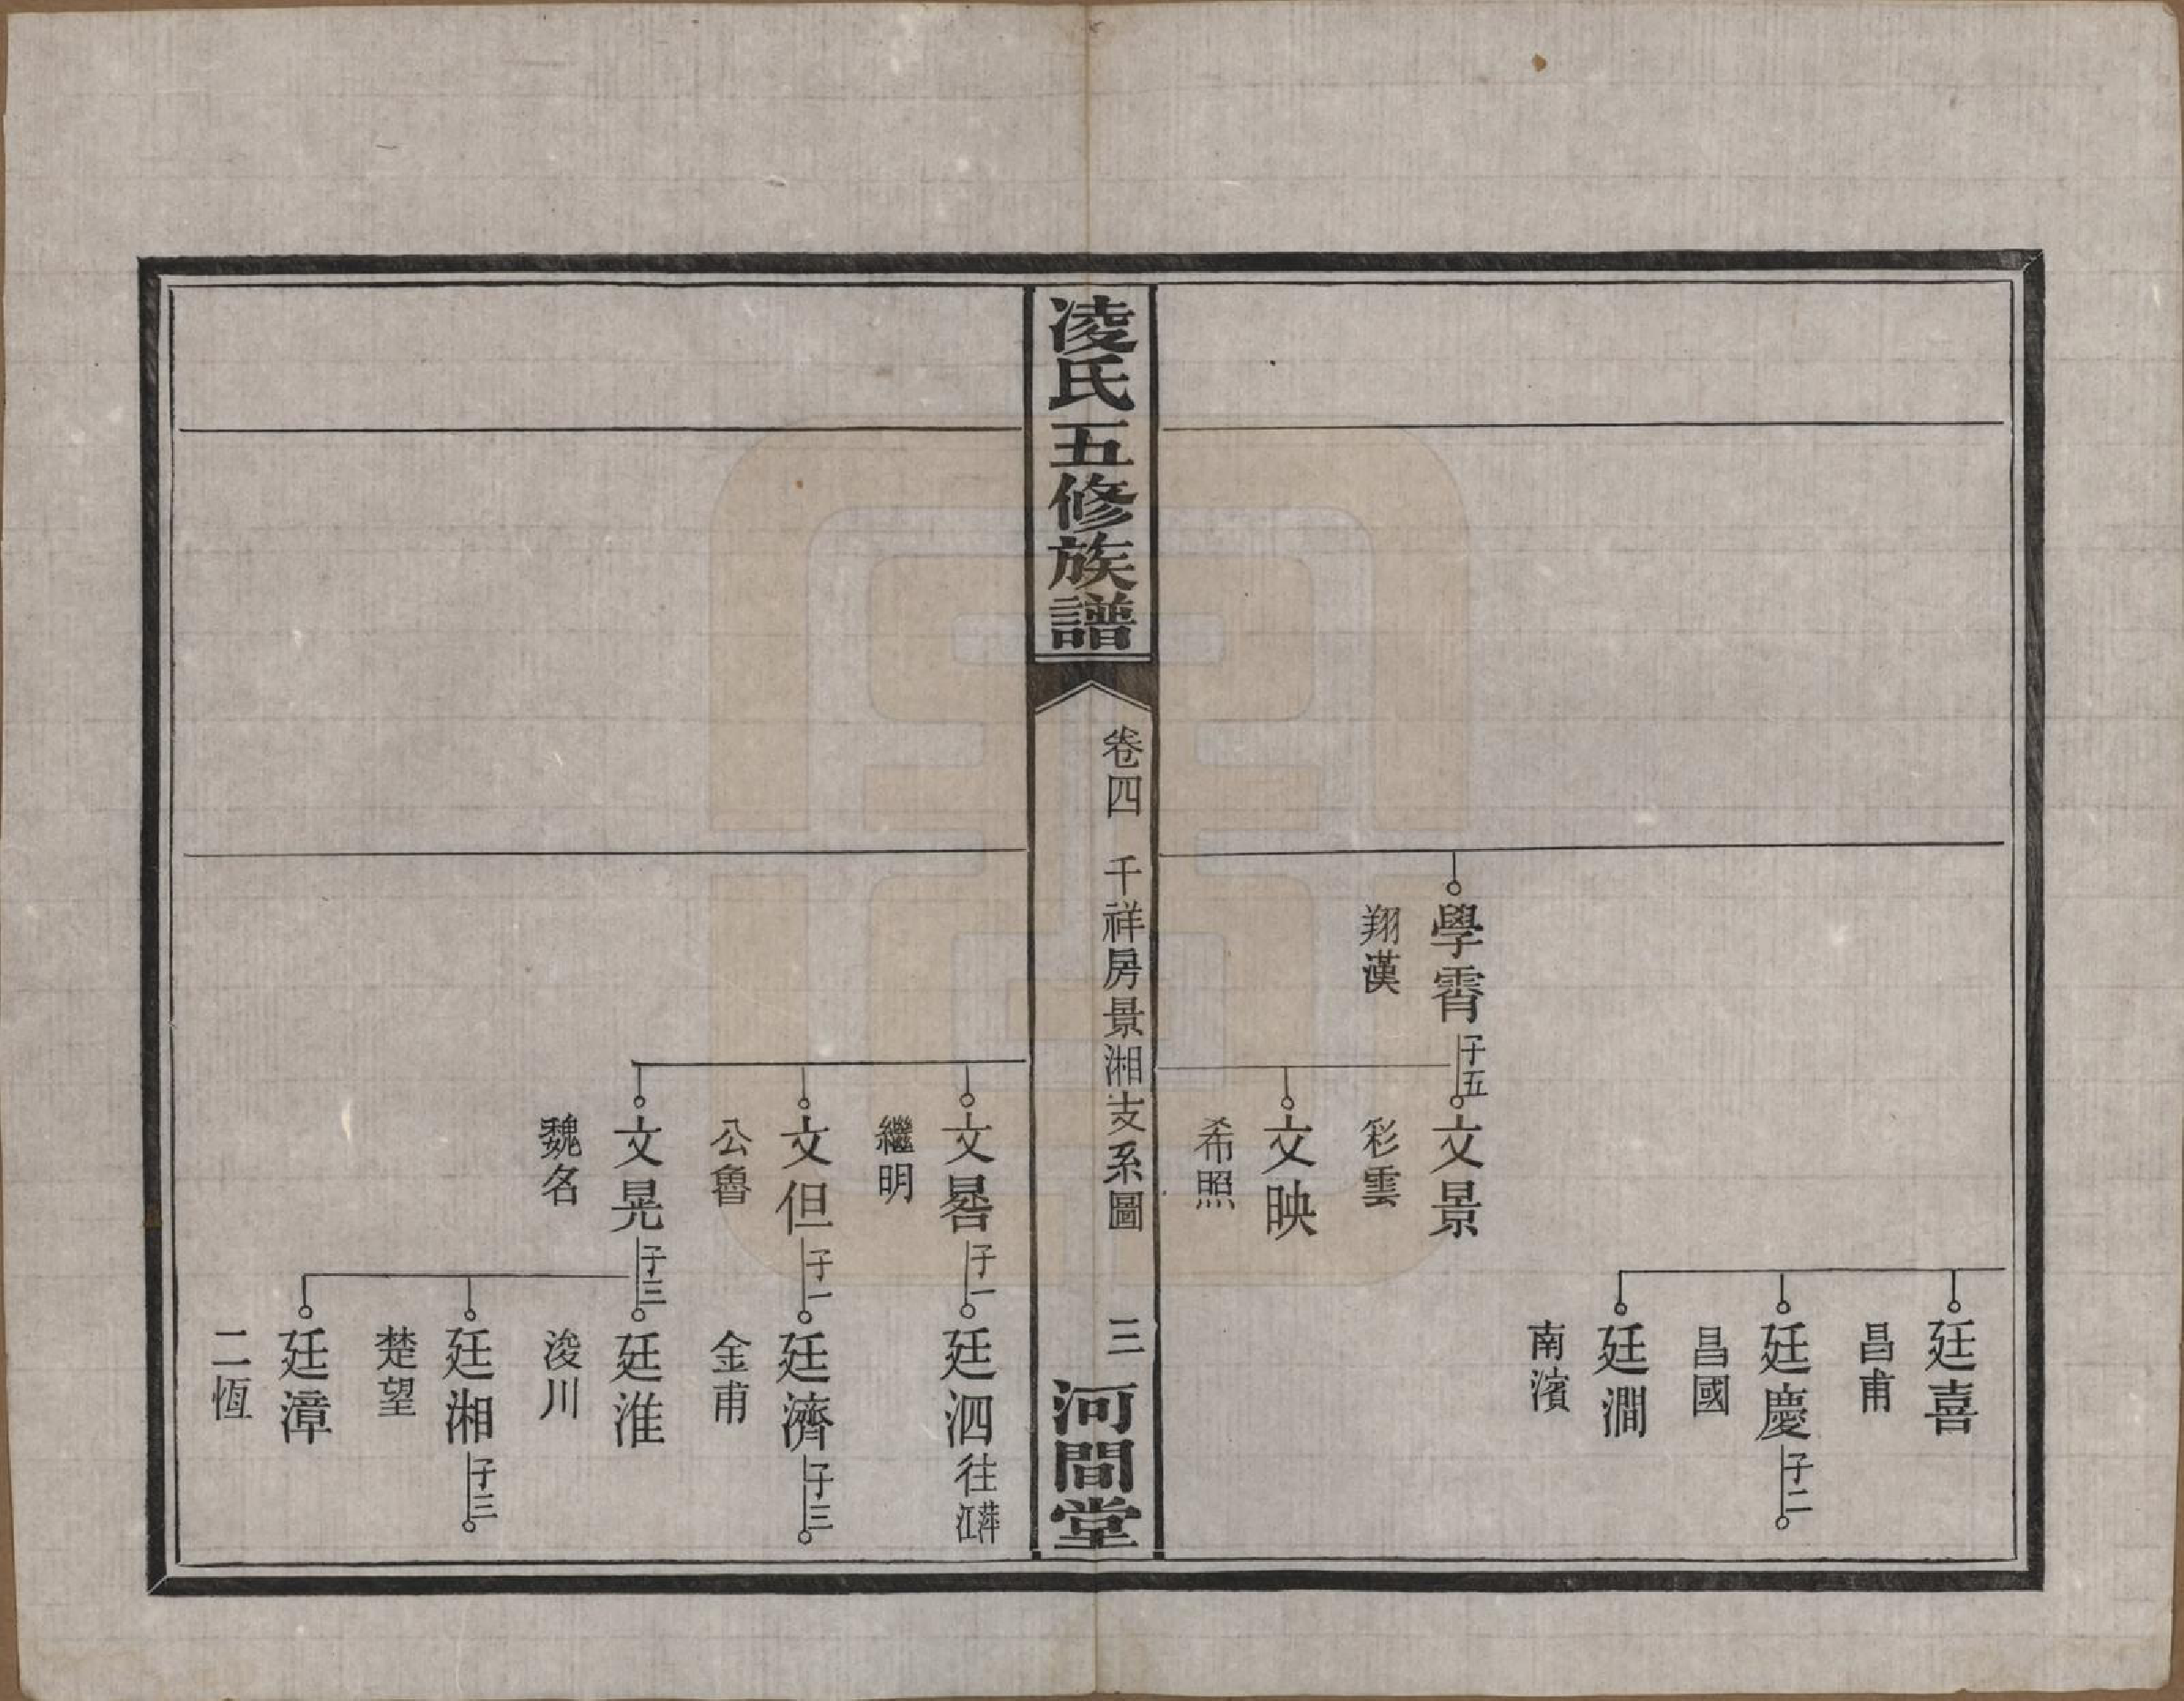 廷喜
昌甫
廷慶 子二
昌國
廷澗
南濱
學霄 子五
翔漢
文景
彩雲
文映
希照
凌氏五修族譜
卷四 千祥房景湘支系圖 三
河間堂
文晷 子一
繼明
廷泗 往萍江
文但 子一
公魯
廷濟 子三
金甫
文晃 子三
魏名
廷淮
浚川
廷湘 子三
楚望
廷漳
二恆